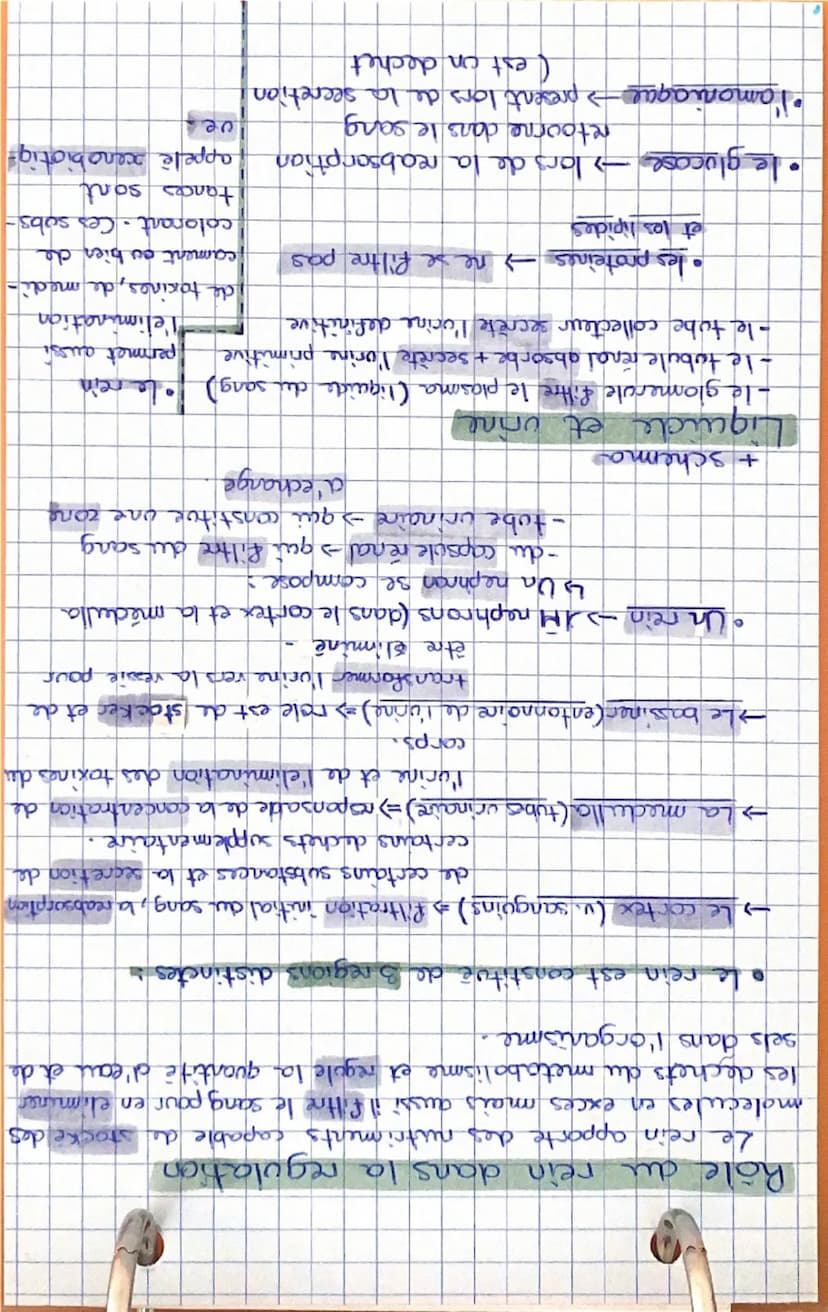 Rôle du rein dans la regulation
Le rein apporte des nutriments capable de stocké des
molecules en exces mais aussi il filtre le sang pour en eliminer
les dechets du metabolisme et regule la quantité d'eau et de
sels dans l'organisme.
• Le rein est constitué de 3 regions distinctes :
→ Le cortex (v. sanguins) => filtration initial du sang, la reabsorption
de certains substances et la secretion de
certains dechets supplementaire.
→ La medulla (tubes urinaire) => responsable de la concentration de
l'urine et de l'elimination des toxines du
corps.
→ Le bassinet (entonnoire de l'urine) => role est de stocker et de
transformer l'urine vers la vessie pour
être éliminé.
• Un rein → 1M nephrons (dans le cortex et la médulla
↳ Un nephron se compose :
- du capsule rénal → qui filtre du sang
- tube urinaire → qui constitue une zone
d'echange.
+ schema
Liquide et urine
- le glomerule filtre le plasma (liquide du sang)
- le tubule rénal absorbe + secrète l'urine primitive
- le tube collecteur secrète l'urine definitive
• les proteines → ne se filtre pas
et les lipides
• le glucose → lors de la reabsorption
retourne dans le sang
• l'amoniaque → present lors de la secretion
(est un dechet
• Le rein
permet aussi
l'elimination
de toxines, de medi-
cament ou bien de
colorant. Ces subs-
tances sont
appelé xenobiotiq-
ue.